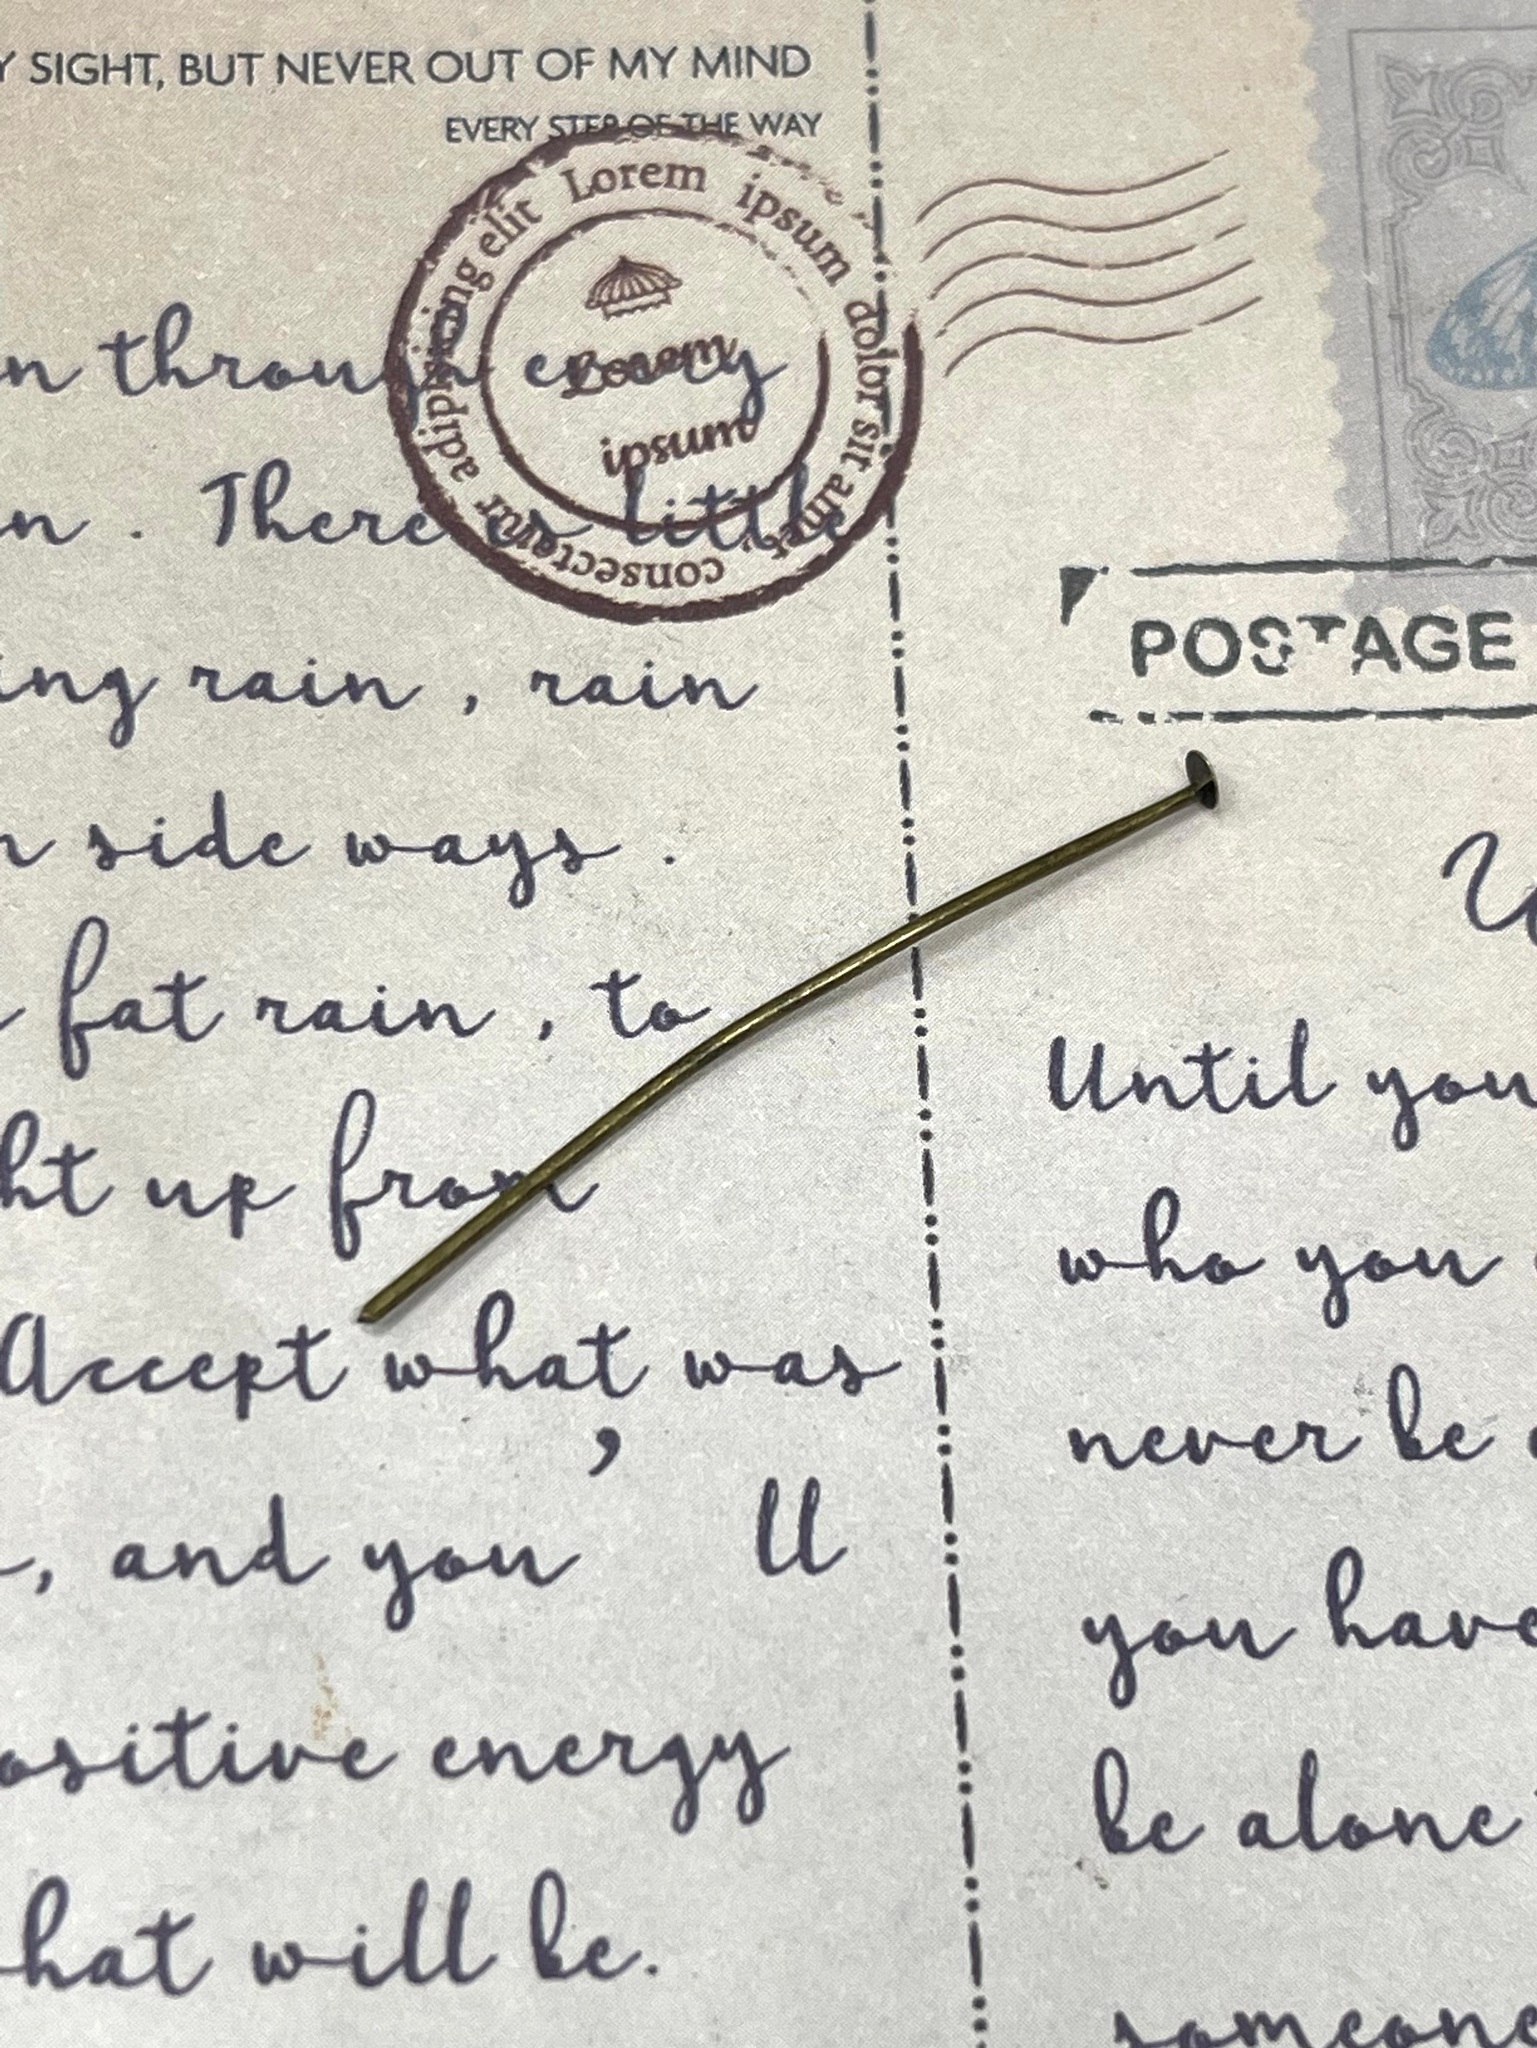 Y SIGHT, BUT NEVER OUT OF MY MIND
EVERY STEP OF THE WAY
Lorem ipsum dolor sit amet, consectetur adipisicing elit
Lorem
ipsum
n through every
n . There is little
ing rain , rain
n side ways .
fat rain , to
ht up from
Accept what was
, and you ’ ll
ositive energy
hat will be.
POSTAGE
Until you
who you
never be
you have
be alone
someone